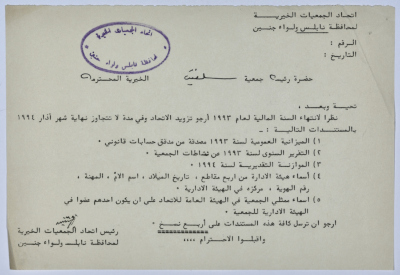 اتحاد الجمعيات الخيرية
لمحافظة نابلس ولواء جنين
الرقم :
التاريخ :
اتحاد الجمعيات الخيرية
لمحافظة نابلس ولواء جنين
حضرة رئيس جمعية سلفيت الخيرية المحترمة
تحية وبعد ،
نظرا لانتهاء السنة المالية لعام ١٩٩٣ أرجو تزويد الاتحاد وفي مدة لا تتجاوز نهاية شهر آذار ١٩٩٤
بالمستندات التالية : -
١) الميزانية العمومية لسنة ١٩٩٣ مصدقة من مدقق حسابات قانوني .
٢) التقرير السنوى لسنة ١٩٩٣ عن نشاطات الجمعية .
٣) الموازنة التقديرية لسنة ١٩٩٤ .
٤) أسماء هيئة الادارة من اربع مقاطع ، تاريخ الميلاد ، اسم الام ، المهنة ،
رقم الهوية ، مركزه في الهيئة الادارية .
٥) اسماء ممثلي الجمعية في الهيئة العامة للاتحاد على ان يكون احدهم عضوا في
الهيئة الادارية للجمعية .
ارجو ان ترسل كافة هذه المستندات على أربع نسخ .
واقبلوا الاحترام ،،،،
رئيس اتحاد الجمعيات الخيرية
لمحافظة نابلس ولواء جنين